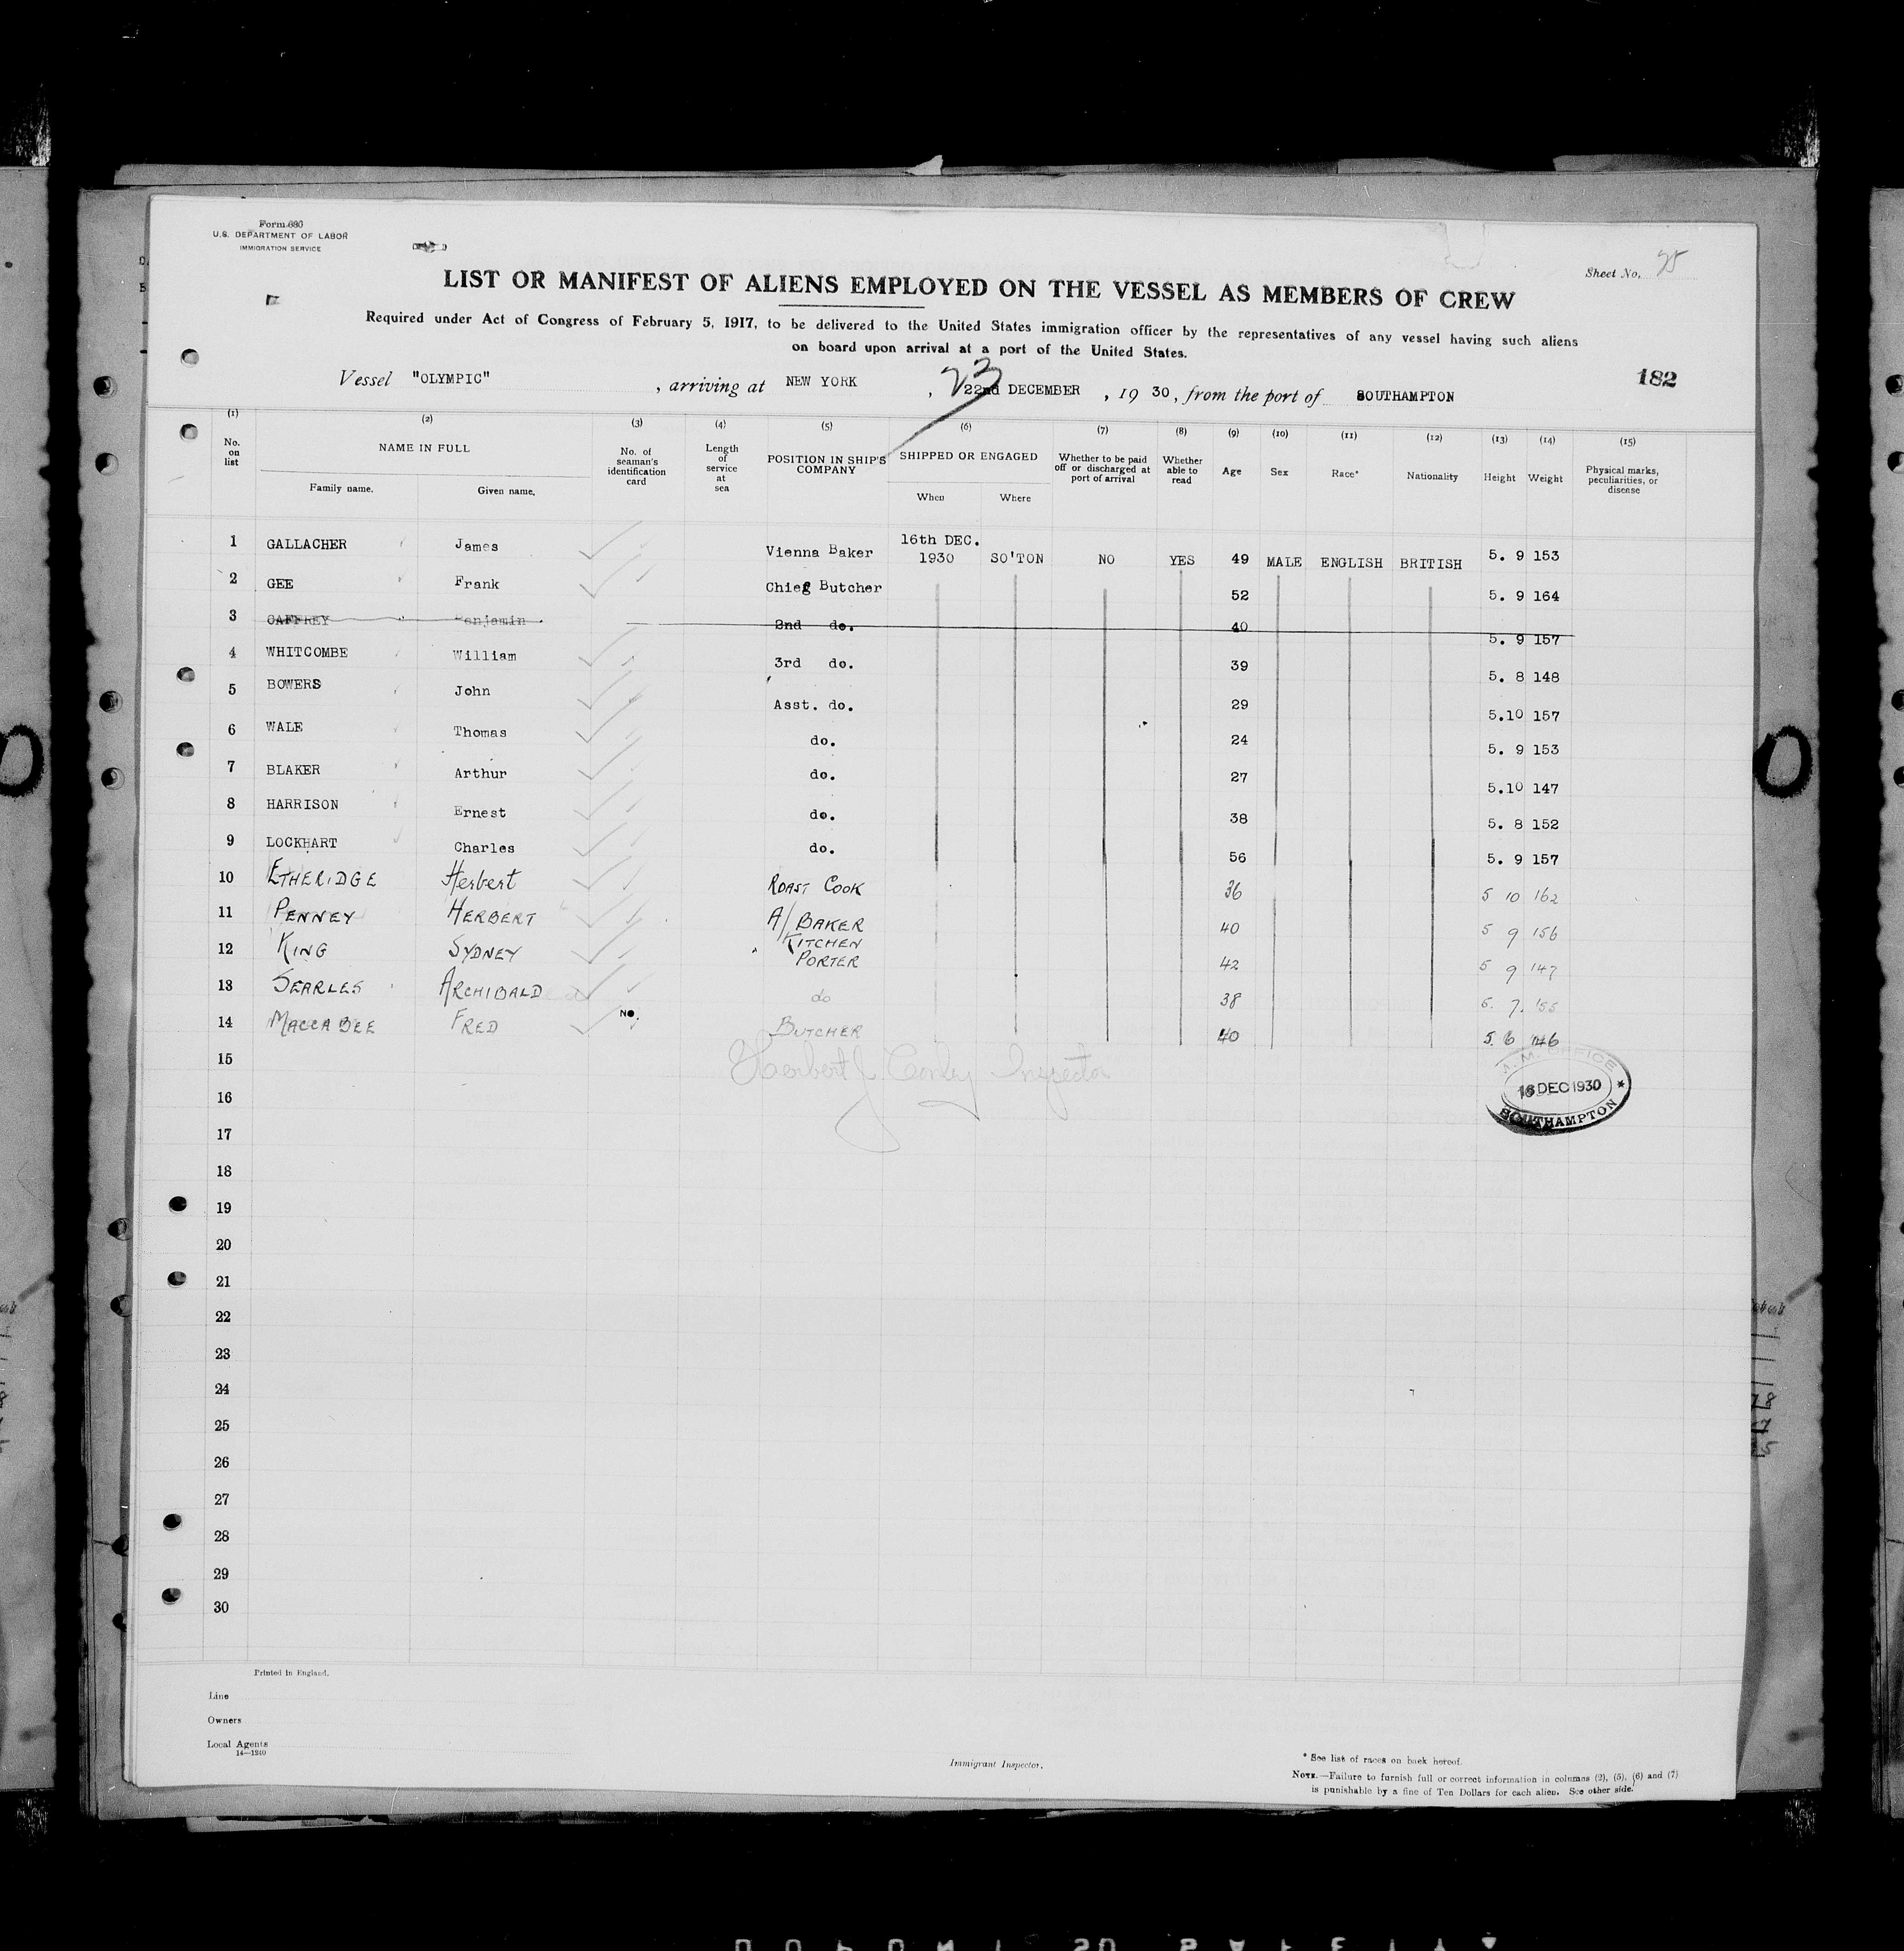 Form 680
U.S. DEPARTMENT OF LABOR
IMMIGRATION SERVICE
Sheet No.
LIST OR MANIFEST OF ALIENS EMPLOYED ON THE VESSEL AS MEMBERS OF CREW
Required under Act of Congress of February 5, 1917, to be delivered to the United States immigration officer by the representatives of any vessel having such aliens
on board upon arrival at a port of the United States.
182
Vessel "OLYMPIC" , arriving at NEW YORK , 23 22nd DECEMBER , 19 30, from the port of SOUTHAMPTON
(1) (2) (3) (4) (5) (6) (7) (8) (9) (10) (11) (12) (13) (14) (15)
No. on list NAME IN FULL Family name. Given name. No. of seaman's identification card Length of service at sea POSITION IN SHIP'S COMPANY SHIPPED OR ENGAGED When Where Whether to be paid off or discharged at port of arrival Whether able to read Age Sex Race* Nationality Height Weight Physical marks, peculiarities, or disease
1 GALLACHER James Vienna Baker 16th DEC. 1930 SO'TON NO YES 49 MALE ENGLISH BRITISH 5. 9 153
2 GEE Frank Chieg Butcher 52 5. 9 164
3 CAFFREY Benjamin 2nd do. 40 5. 9 157
4 WHITCOMBE William 3rd do. 39 5. 8 148
5 BOWERS John Asst. do. 29 5.10 157
6 WALE Thomas do. 24 5. 9 153
7 BLAKER Arthur do. 27 5.10 147
8 HARRISON Ernest do. 38 5. 8 152
9 LOCKHART Charles do. 56 5. 9 157
10 ETHERIDGE Herbert ROAST COOK 36 5 10 162
11 PENNEY HERBERT A/ BAKER 40 5 9 156
12 KING SYDNEY KITCHEN PORTER 42 5 9 147
13 SEARLES ARCHIBALD do 38 5. 7. 155
14 MACCABEE FRED No. BUTCHER 40 5. 6 146
15
Herbert J. Conley Inspector
M.M. OFFICE
16 DEC 1930
SOUTHAMPTON
16
17
18
19
20
21
22
23
24
25
26
27
28
29
30
Printed in England.
Line
Owners
Local Agents
14—1240
Immigrant Inspector.
* See list of races on back hereof.
NOTE.—Failure to furnish full or correct information in columns (2), (5), (6) and (7)
is punishable by a fine of Ten Dollars for each alien. See other side.